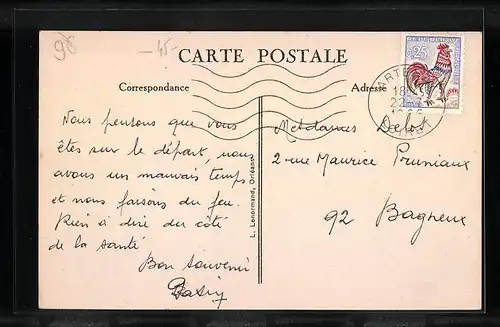 98
-45-
CARTE POSTALE
Correspondance
Adresse
0,25
ARTE
18
22
Nous pensons que vous
êtes sur le départ, nous
avons un mauvais temps
et nous faisons du feu.
Rien à dire du côté
de la santé
Bon souvenir
L. Lenormand, Orléans
Mesdames Delost
2 rue Maurice Pruniaux
92 Bagneux